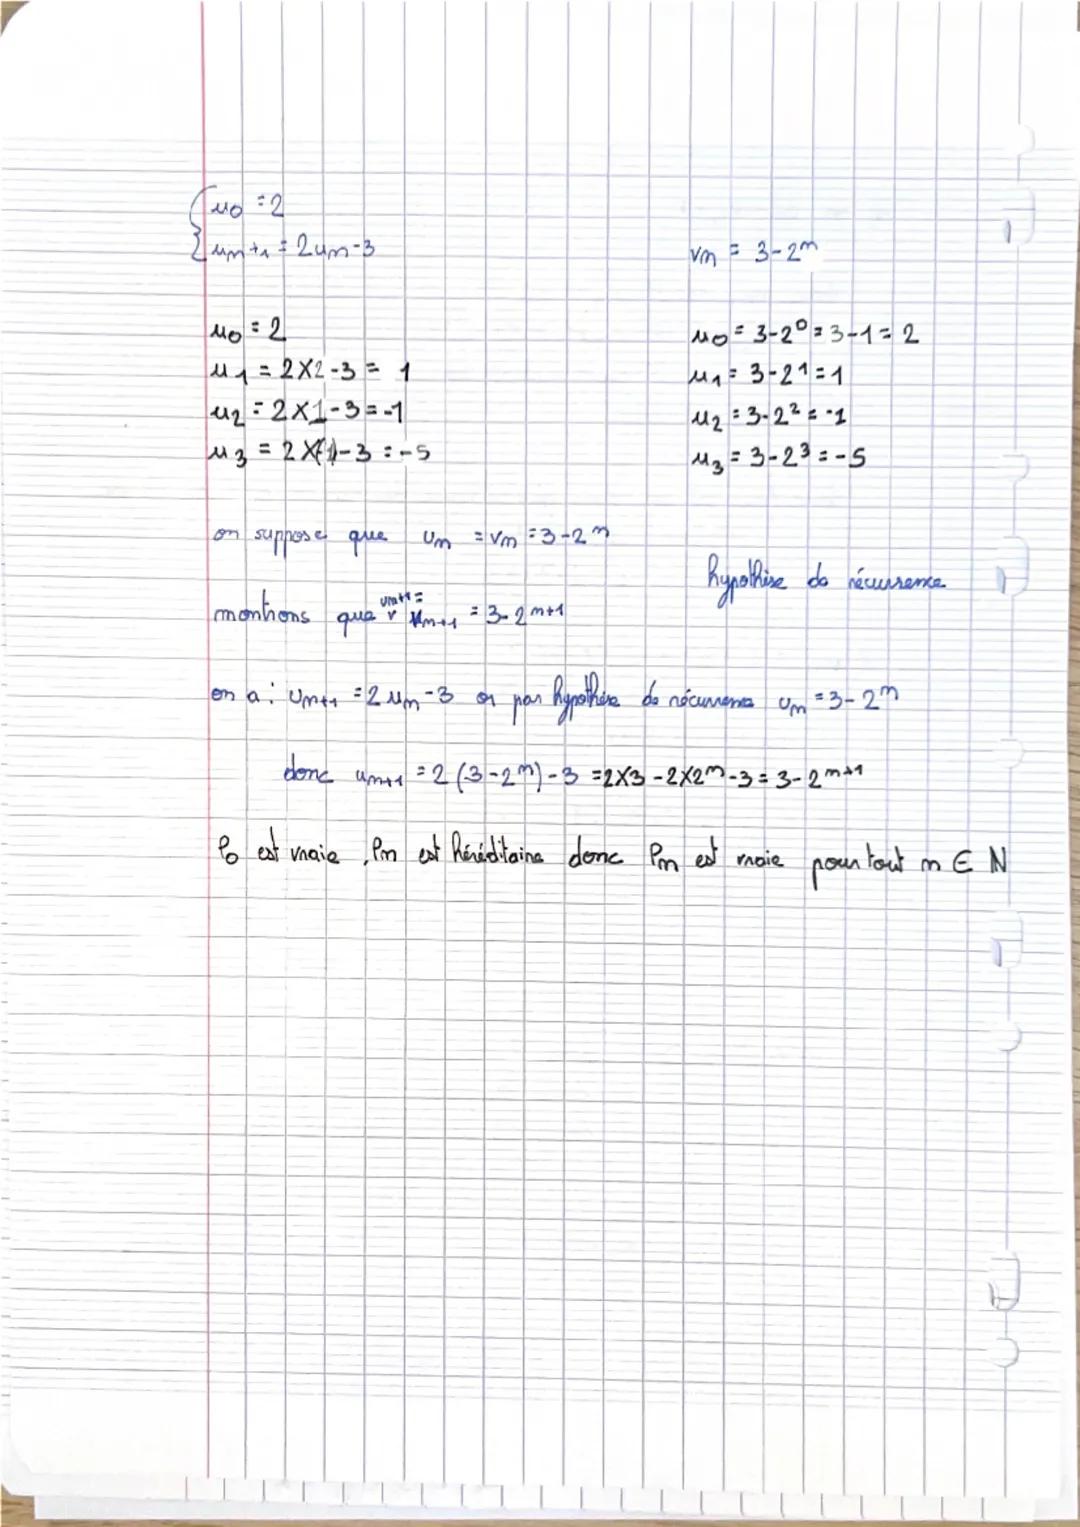 u0 = 2
un+1 = 2un-3
vn = 3-2^n
u0 = 2
u1 = 2×2-3 = 1
u2 = 2×1-3 = -1
u3 = 2×(-1)-3 = -5
u0 = 3-2^0 = 3-1 = 2
u1 = 3-2^1 = 1
u2 = 3-2^2 = -1
u3 = 3-2^3 = -5
on suppose que un = vn = 3-2^n
hypothèse de récurrence
montrons que un+1 = vn+1 = 3-2^n+1
on a : un+1 = 2un-3 or par hypothèse de récurrence un = 3-2^n
donc un+1 = 2(3-2^n)-3 = 2×3-2×2^n-3 = 3-2^n+1
P0 est vraie, Pn est héréditaire donc Pn est vraie pour tout n ∈ N